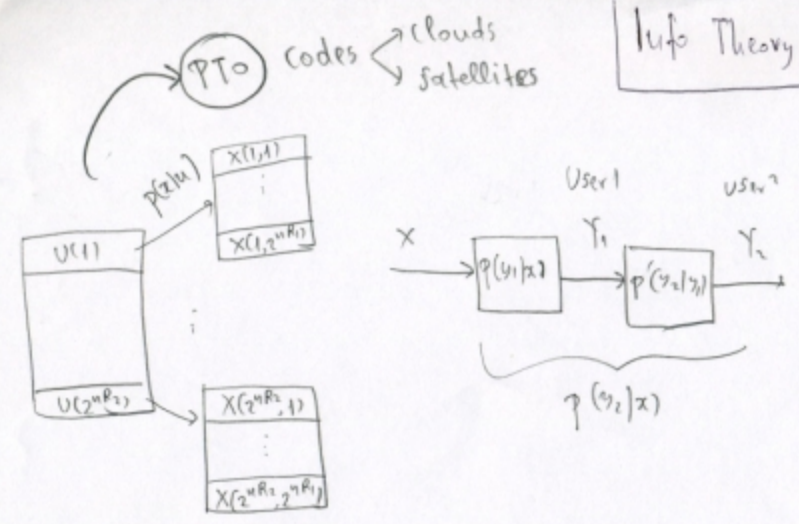 Info Theory
PTo codes
clouds
satellites
p(x|u)
U(1)
U(2^{nR_2})
X(1,1)
⋮
X(1,2^{nR_1})
⋮
X(2^{nR_2},1)
⋮
X(2^{nR_2},2^{nR_1})
User 1
User 2
X
p(y_1|x)
Y_1
p'(y_2|y_1)
Y_2
p(y_2|x)